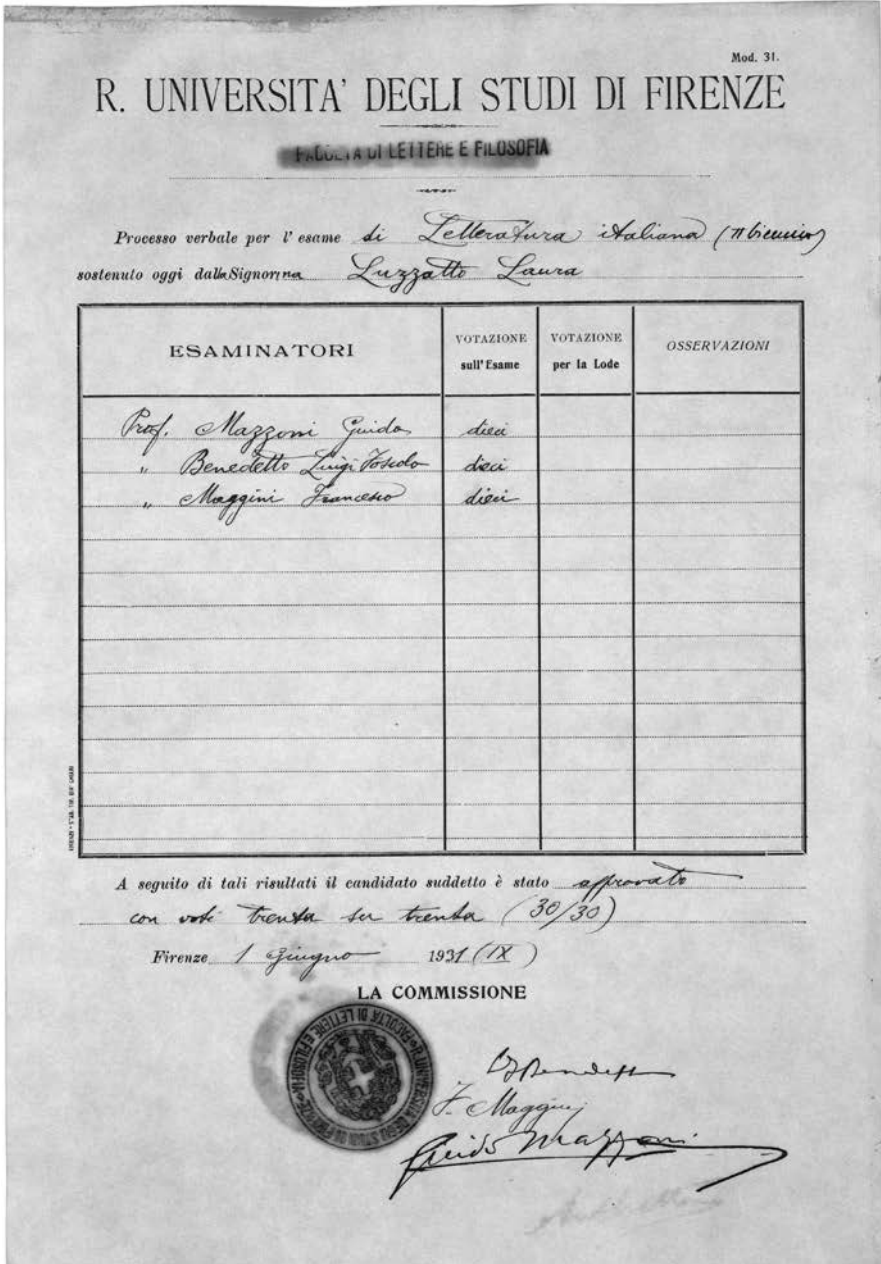 Mod. 31.
R. UNIVERSITA' DEGLI STUDI DI FIRENZE
FACOLTA DI LETTERE E FILOSOFIA
Processo verbale per l' esame di Letteratura italiana (II biennio)
sostenuto oggi dalla Signorina Luzzatto Laura
ESAMINATORI
VOTAZIONE sull'Esame
VOTAZIONE per la Lode
OSSERVAZIONI
Prof. Mazzoni Guido dieci
" Benedetto Luigi Foscolo dieci
" Maggini Francesco dieci
A seguito di tali risultati il candidato suddetto è stato approvato
con voti trenta su trenta (30/30)
Firenze 1 Giugno 1931 (IX)
LA COMMISSIONE
R. UNIVERSITA DEGLI STUDI DI FIRENZE FACOLTA DI LETTERE E FILOSOFIA
F. Maggini
Guido Mazzoni